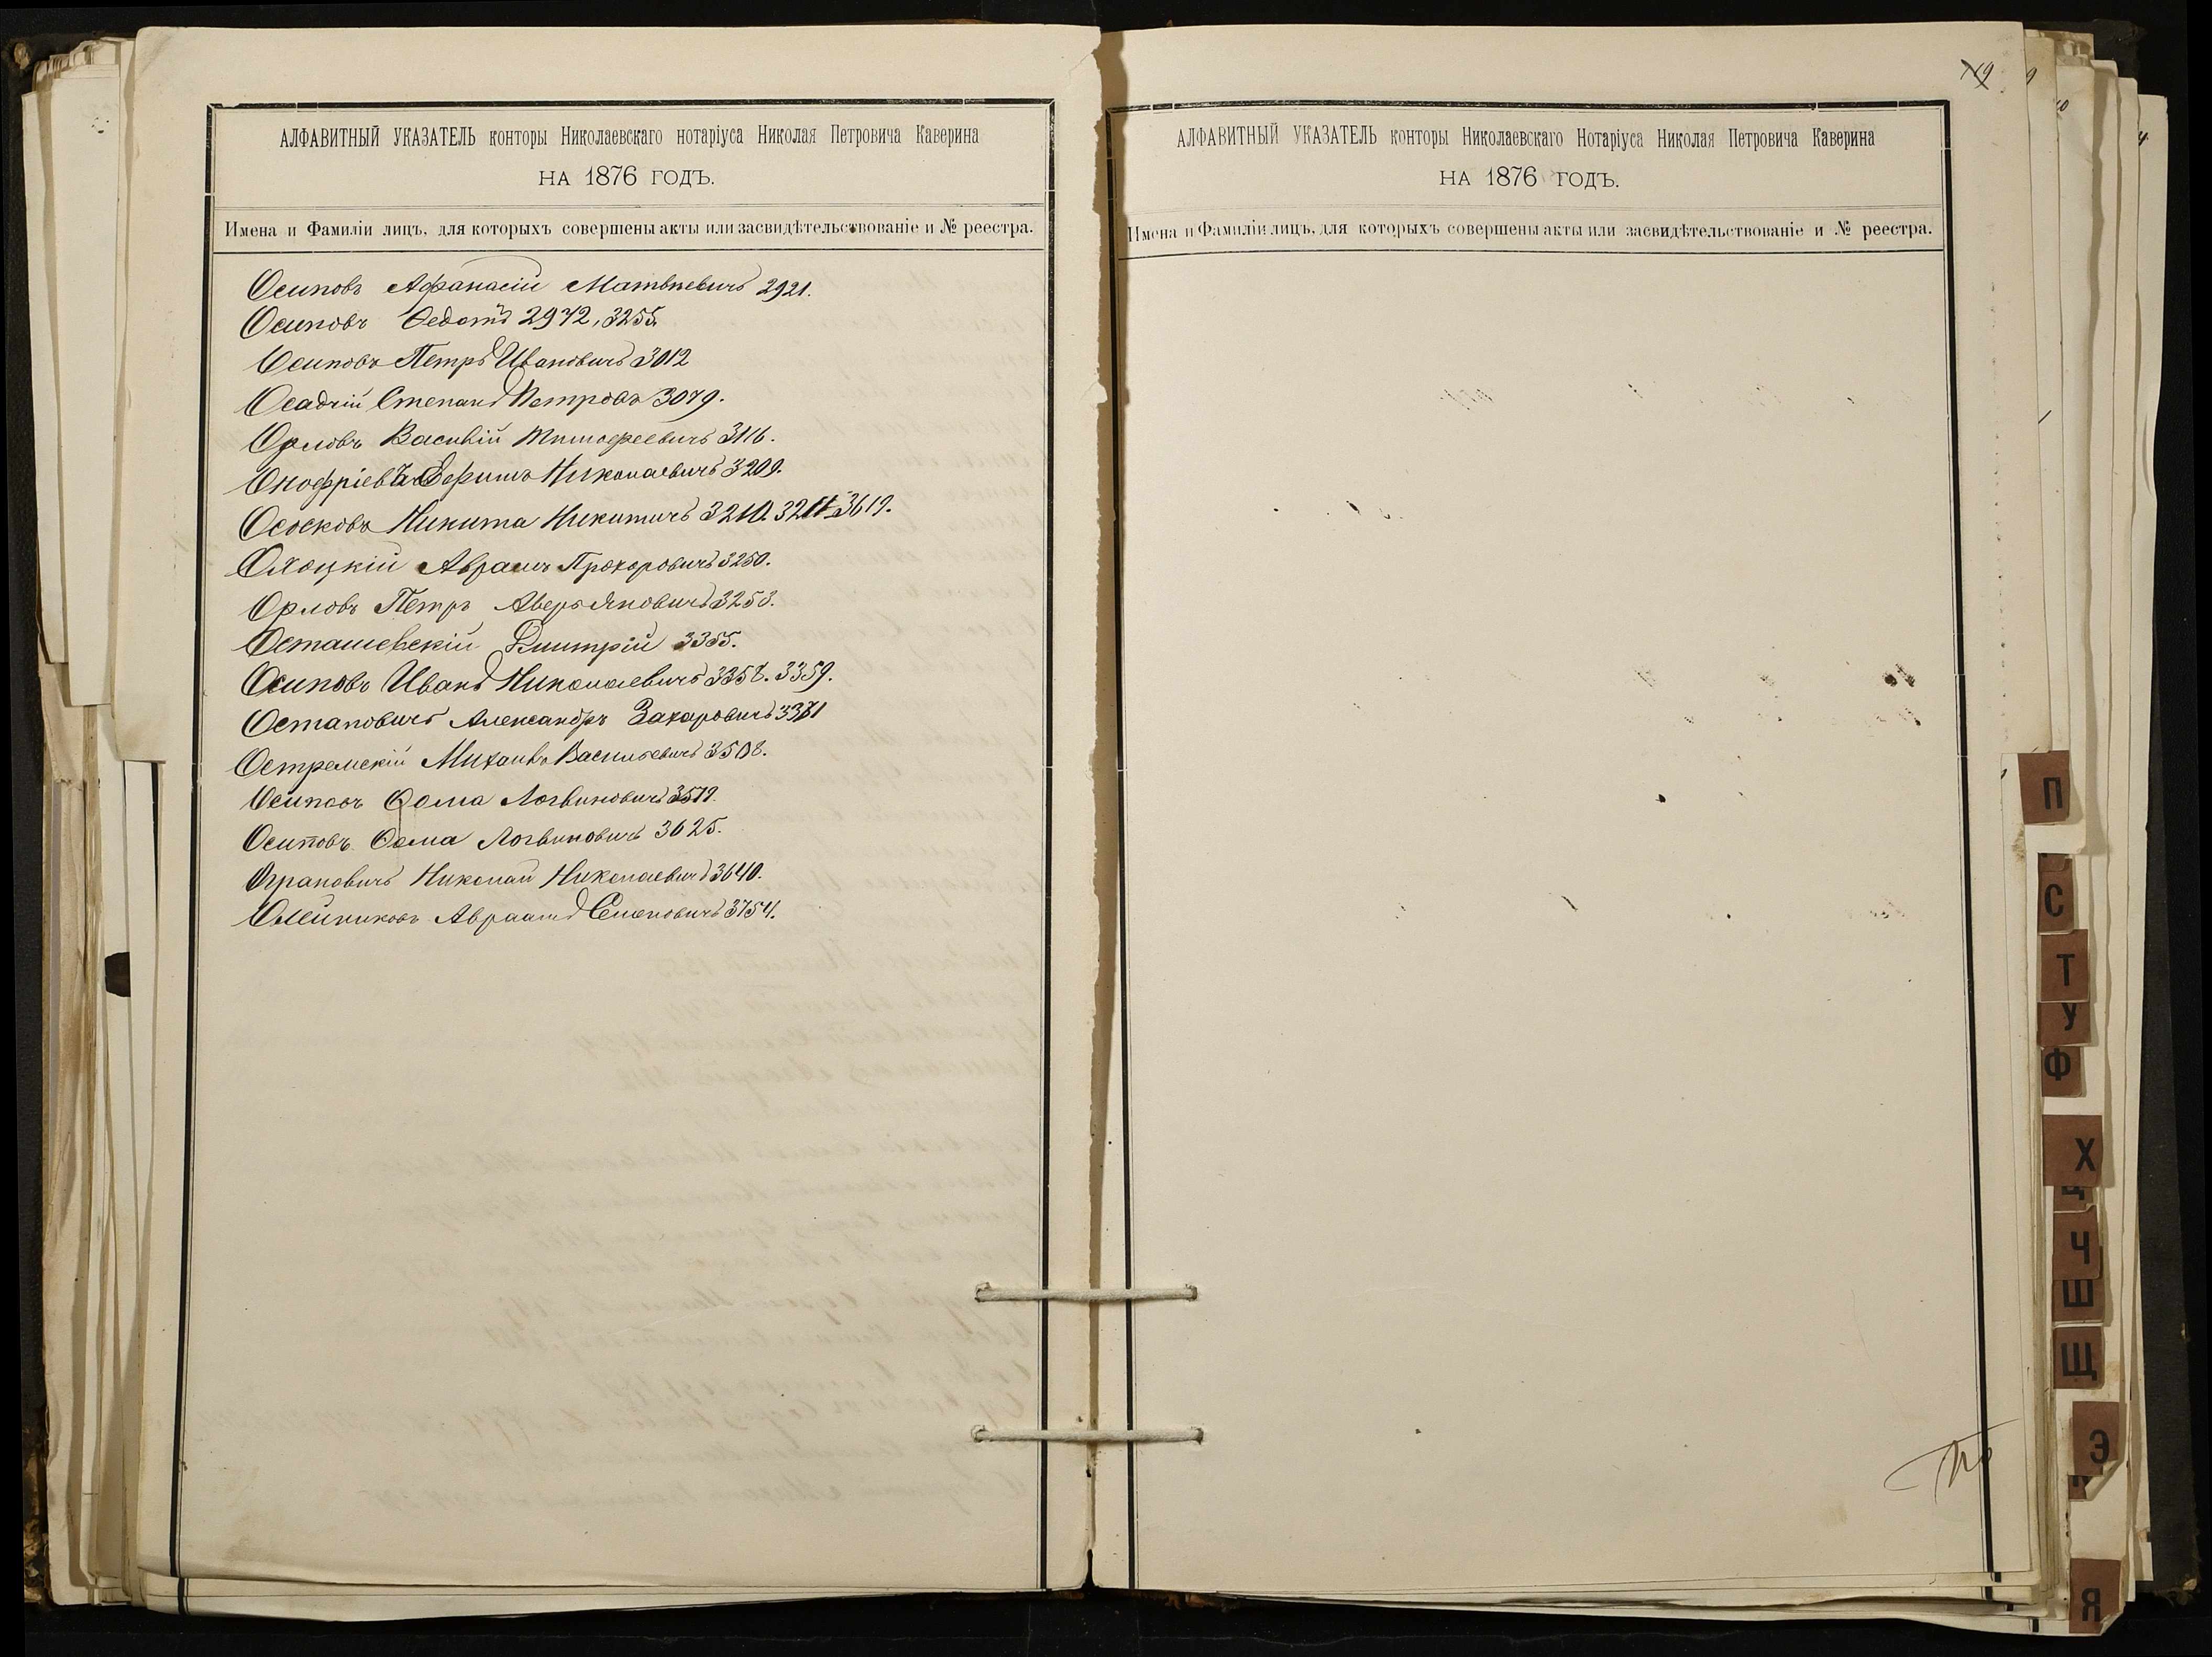 АЛФАВИТНЫЙ УКАЗАТЕЛЬ конторы Николаевскаго нотаріуса Николая Петровича Каверина
НА 1876 ГОДЪ.
Имена и Фамиліи лицъ, для которыхъ совершены акты или засвидѣтельствованіе и № реестра.
Осиповъ Афанасій Матвѣевичъ 2921.
Осиповъ Ѳедотъ 2972, 3255.
Осиповъ Петръ Ивановичъ 3012
Осадчій Степанъ Петровъ 3079.
Орловъ Василій Тимофеевичъ 3116.
Онофріевъ Ефимъ Николаевичъ 3209.
Ососковъ Никита Никитичъ 3210. 3211 3619.
Аврамъ Прохоровичъ 3250.
Орловъ Петръ Аверьяновичъ 3253.
Осташевскій Дмитрій 3355.
Осиповъ Иванъ Николаевичъ 3358. 3359.
Остаповичъ Александръ Захаровичъ 3381
Остремскій Михаилъ Васильевичъ 3508.
Осиповъ Ѳома Логвиновичъ 3579.
Осиповъ Ѳома Логвиновичъ 3625.
Ограновичъ Николай Николаевичъ 3640.
Олейниковъ Авраамъ Семеновичъ 3754.
АЛФАВИТНЫЙ УКАЗАТЕЛЬ конторы Николаевскаго Нотаріуса Николая Петровича Каверина
НА 1876 ГОДЪ.
Имена и Фамиліи лицъ, для которыхъ совершены акты или засвидѣтельствованіе и № реестра.
П
С
Т
У
Ф
Х
Ц
Ч
Ш
Щ
Э
Я